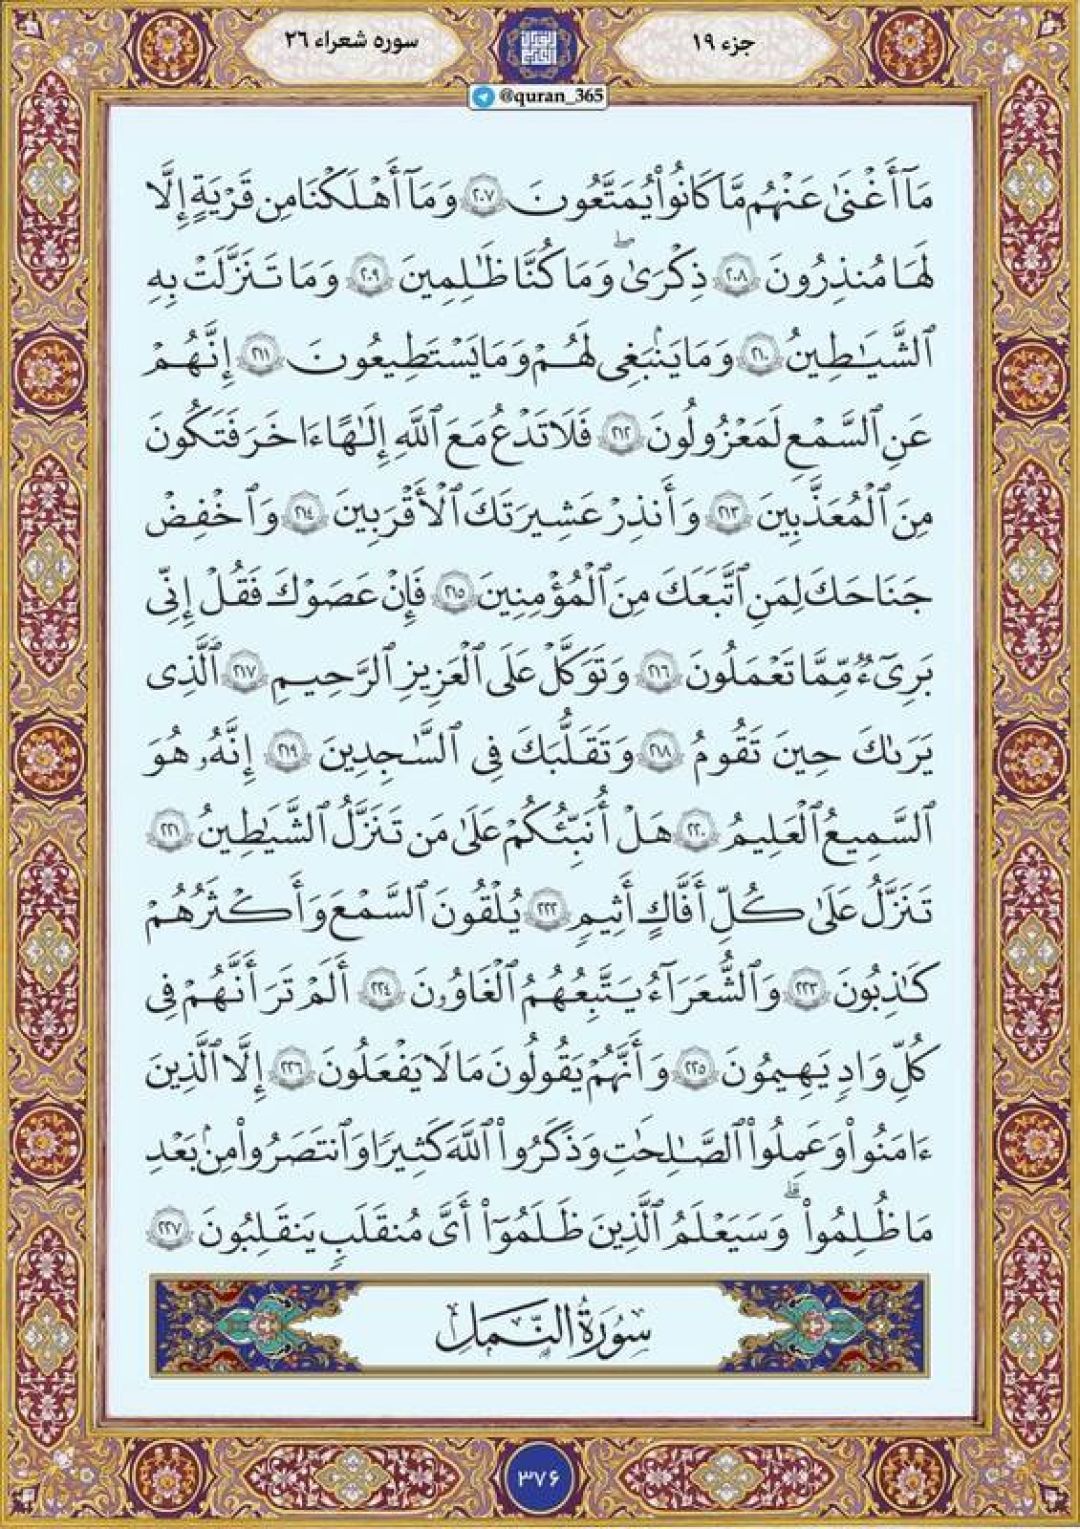 جزء ۱۹
سوره شعراء ۲۶
@quran_365
مَآ أَغْنَىٰ عَنْهُم مَّا كَانُوا۟ يُمَتَّعُونَ ٢٠٧ وَمَآ أَهْلَكْنَا مِن قَرْيَةٍ إِلَّا
لَهَا مُنذِرُونَ ٢٠٨ ذِكْرَىٰ ۖ وَمَا كُنَّا ظَٰلِمِينَ ٢٠٩ وَمَا تَنَزَّلَتْ بِهِ
ٱلشَّيَٰطِينُ ٢١٠ وَمَا يَنۢبَغِى لَهُمْ وَمَا يَسْتَطِيعُونَ ٢١١ إِنَّهُمْ
عَنِ ٱلسَّمْعِ لَمَعْزُولُونَ ٢١٢ فَلَا تَدْعُ مَعَ ٱللَّهِ إِلَٰهًا ءَاخَرَ فَتَكُونَ
مِنَ ٱلْمُعَذَّبِينَ ٢١٣ وَأَنذِرْ عَشِيرَتَكَ ٱلْأَقْرَبِينَ ٢١٤ وَٱخْفِضْ
جَنَاحَكَ لِمَنِ ٱتَّبَعَكَ مِنَ ٱلْمُؤْمِنِينَ ٢١٥ فَإِنْ عَصَوْكَ فَقُلْ إِنِّى
بَرِىٓءٌ مِّمَّا تَعْمَلُونَ ٢١٦ وَتَوَكَّلْ عَلَى ٱلْعَزِيزِ ٱلرَّحِيمِ ٢١٧ ٱلَّذِى
يَرَىٰكَ حِينَ تَقُومُ ٢١٨ وَتَقَلُّبَكَ فِى ٱلسَّٰجِدِينَ ٢١٩ إِنَّهُۥ هُوَ
ٱلسَّمِيعُ ٱلْعَلِيمُ ٢٢٠ هَلْ أُنَبِّئُكُمْ عَلَىٰ مَن تَنَزَّلُ ٱلشَّيَٰطِينُ ٢٢١
تَنَزَّلُ عَلَىٰ كُلِّ أَفَّاكٍ أَثِيمٍ ٢٢٢ يُلْقُونَ ٱلسَّمْعَ وَأَكْثَرُهُمْ
كَٰذِبُونَ ٢٢٣ وَٱلشُّعَرَآءُ يَتَّبِعُهُمُ ٱلْغَاوُۥنَ ٢٢٤ أَلَمْ تَرَ أَنَّهُمْ فِى
كُلِّ وَادٍ يَهِيمُونَ ٢٢٥ وَأَنَّهُمْ يَقُولُونَ مَا لَا يَفْعَلُونَ ٢٢٦ إِلَّا ٱلَّذِينَ
ءَامَنُوا۟ وَعَمِلُوا۟ ٱلصَّٰلِحَٰتِ وَذَكَرُوا۟ ٱللَّهَ كَثِيرًا وَٱنتَصَرُوا۟ مِنۢ بَعْدِ
مَا ظُلِمُوا۟ ۗ وَسَيَعْلَمُ ٱلَّذِينَ ظَلَمُوٓا۟ أَىَّ مُنقَلَبٍ يَنقَلِبُونَ ٢٢٧
سُورَةُ النَّمْل
۳۷۶